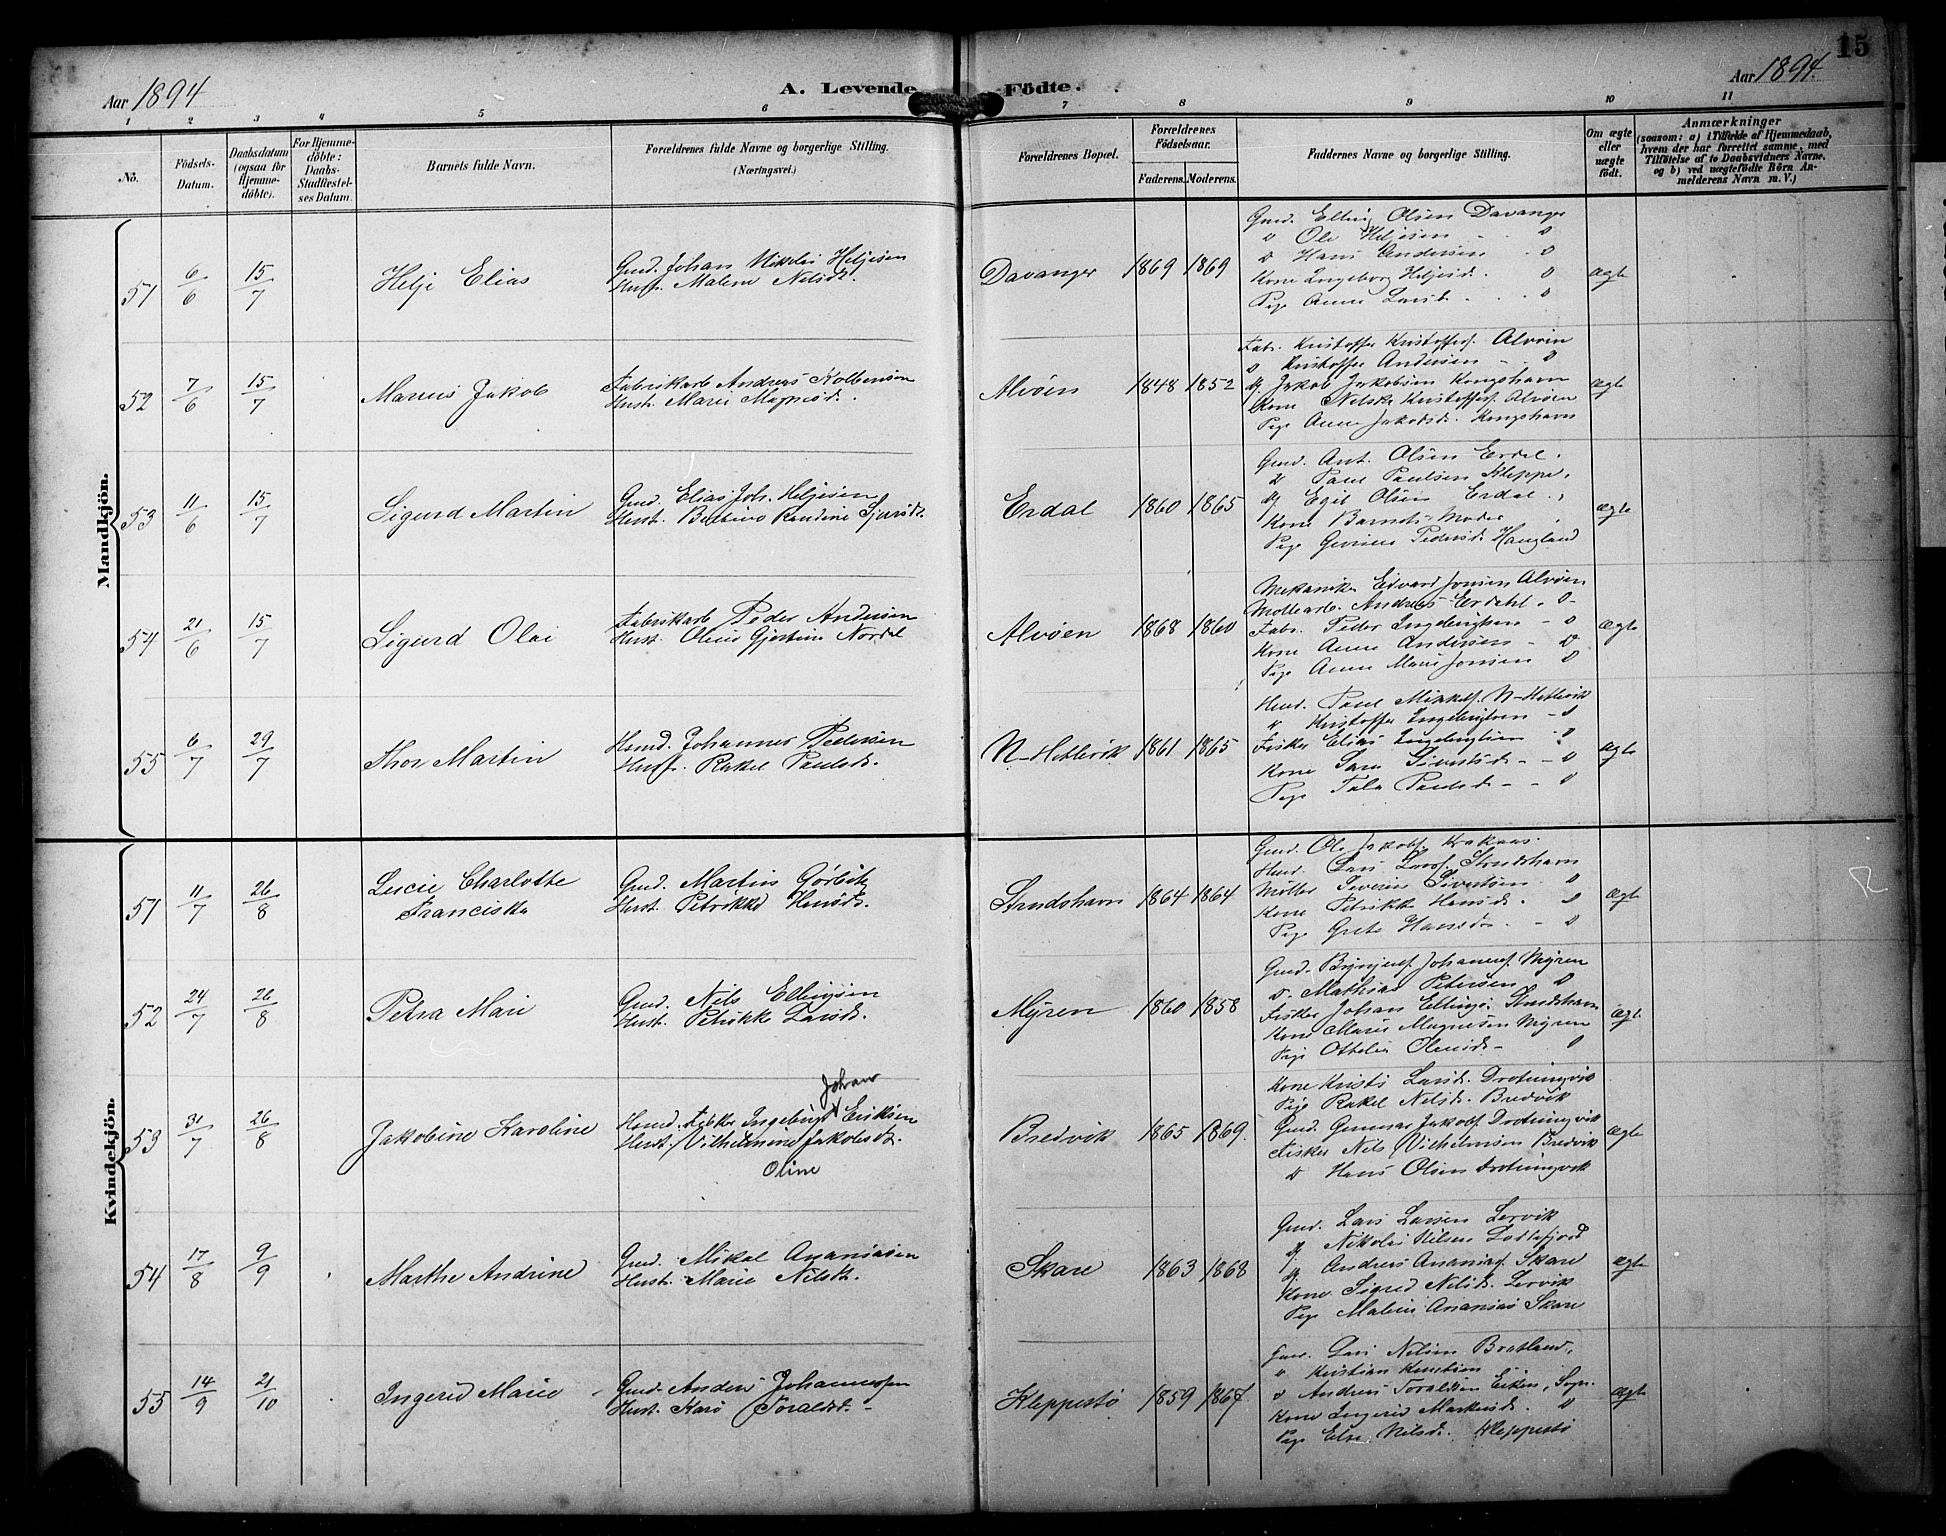 15
Aar 1894
A. Levende Födte.
Aar 1894.
1 2 3 4 5 6 7 8 9 10 11
No.
Födsels-Datum.
Daabsdatum (ogsaa for Hjemme-döbte).
For Hjemme-döbte: Daabs-Stadfæstel-ses Datum.
Barnets fulde Navn.
Forældrenes fulde Navne og borgerlige Stilling. (Næringsvei.)
Forældrenes Bopæl.
Forældrenes Födselsaar.
Faderens. Moderens.
Faddernes Navne og borgerlige Stilling.
Om ægte eller uægte födt.
Anmærkninger
(saasom: a) i Tilfælde af Hjemmedaab, hvem der har forrettet samme, med Tilföielse af to Daabsvidners Navne, og b) ved uægtefödte Börn An-melderens Navn m. V.)
Mandkjön.
51 6/6 15/7 Helje Elias
Gmd. Johan Nikolai Heljesen
Hust. Malene Nilsdt.
Davanger 1869 1869
Gmd. Elling Olsen Davanger
" Ole Heljesen - "
" Hans Andersen - "
Kone Ingeborg Heljesd. "
Pige Anne Larsd. "
ægte
52 7/6 15/7 Marius Jakob
Fabrikarb. Andreas Kolbensen
Hust. Marie Magnesd.
Alvöen 1848 1852
Fabr. Kristoffer Kristoffers. Alvöen
" Kristoffer Andersen - "
Jakob Jakobsen Kongshavn
Kone Nilske Kristoffersd. Alvöen
Pige Anna Jakobsd. Kongshavn
ægte
53 11/6 15/7 Sigurd Martin
Gmd. Elias Joh. Heljesen
Hust. Randine
Erdal 1860 1865
Gmd. Ant. Olsen Erdal.
" Paul Paulsen Kleppe.
Egil Olsen Erdal.
Kone Barnets Moder
Pige Pedersd. Haugland
ægte
54 21/6 15/7 Sigurd Olai
Fabrikarb. Peder Andersen
Hust. Oline Gjertine Nordal
Alvöen 1868 1860
Mekaniker Edvard Jonsen Alvöen
Möllearb. Andreas Erdahl "
Fabr. Peder Ingebrigtsen - "
Kone Anna Andersen - "
Pige Anne Marie Jonsen "
ægte
55 6/7 29/7 Thor Martin
Hmd. Johannes Pedersen
Hust. Rakel Paulsd.
N-Hetlevik 1861 1865
Hmd. Paul Mikkels. N-Hetlevik
" Kristoffer Ingebrigtsen - "
Fisker Elias Ingebrigtsen "
Kone Sara Sivertsd. - - "
Pige Paulsd. - - "
ægte
Kvindekjön.
51 11/7 26/8 Lucie Charlotte
Franciska
Gmd. Martin Görbitz
Hust. Petrikke Hansd.
Strudshavn 1864 1864
Gmd. Ole Jakobs. Krokaas
Hmd. Lars Larss. Strudshavn
Möller Severin Sivertsen "
Kone Petrikke Hansd. "
Pige Grete Hansd. - "
ægte
52 24/7 26/8 Petra Marie
Gmd. Nils Ellingsen
Hust. Petrikke Larsd.
Myren 1860 1858
Gmd. Brynjulf Johannes. Myren
" Mathias Petersen "
Fisker Johan Ellings. Strudshavn
Kone Marie Magnesen Myren
Pige Othelie Olsensd. - "
ægte
53 31/7 26/8 Jakobine Karoline
Johan
Hmd. Fisker Ingebrigt Eriksen
Hust. Vilhelmine Jakobsdt.
Oline
Bredvik 1865 1869.
Kone Kristi Larsd. Drotningvik
Pige Rakel Nilsd. Bredvik
Gmd. Gunnar Jakobs. Drotningvik
Fisker Nils Vilhelmsen Bredvik
" Hans Olsen Drotningvik
ægte
54 17/8 9/9 Marthe Andrine
Gmd. Mikal Ananiasen
Hust. Marie Nilsdt.
Skare 1863 1868
Gmd. Lars Larsen Lervik
Nikolai Nilsen
Andreas Ananias. Skare
Kone Sigrid Nilsd. Lervik
Pige Malene Ananias Skare
ægte
55 14/9 21/10 Ingerid Marie
Gmd. Anders Johannessen
Hust. Kari Toraldsd.
Kleppestö 1859 1867.
Gmd. Lars Nilsen Bratland,
" Kristian Knutsen
" Andreas Toraldsen Eiken, Sogn.
Kone Ingerid Markusd. "
Pige Else Nilsd. Kleppestö
ægte